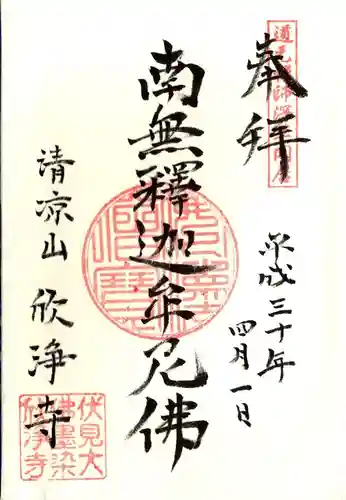 奉拜
平成三十年
四月一日
南無釋迦牟尼佛
清涼山 欣淨寺
伏見大
佛墨染
欣淨寺